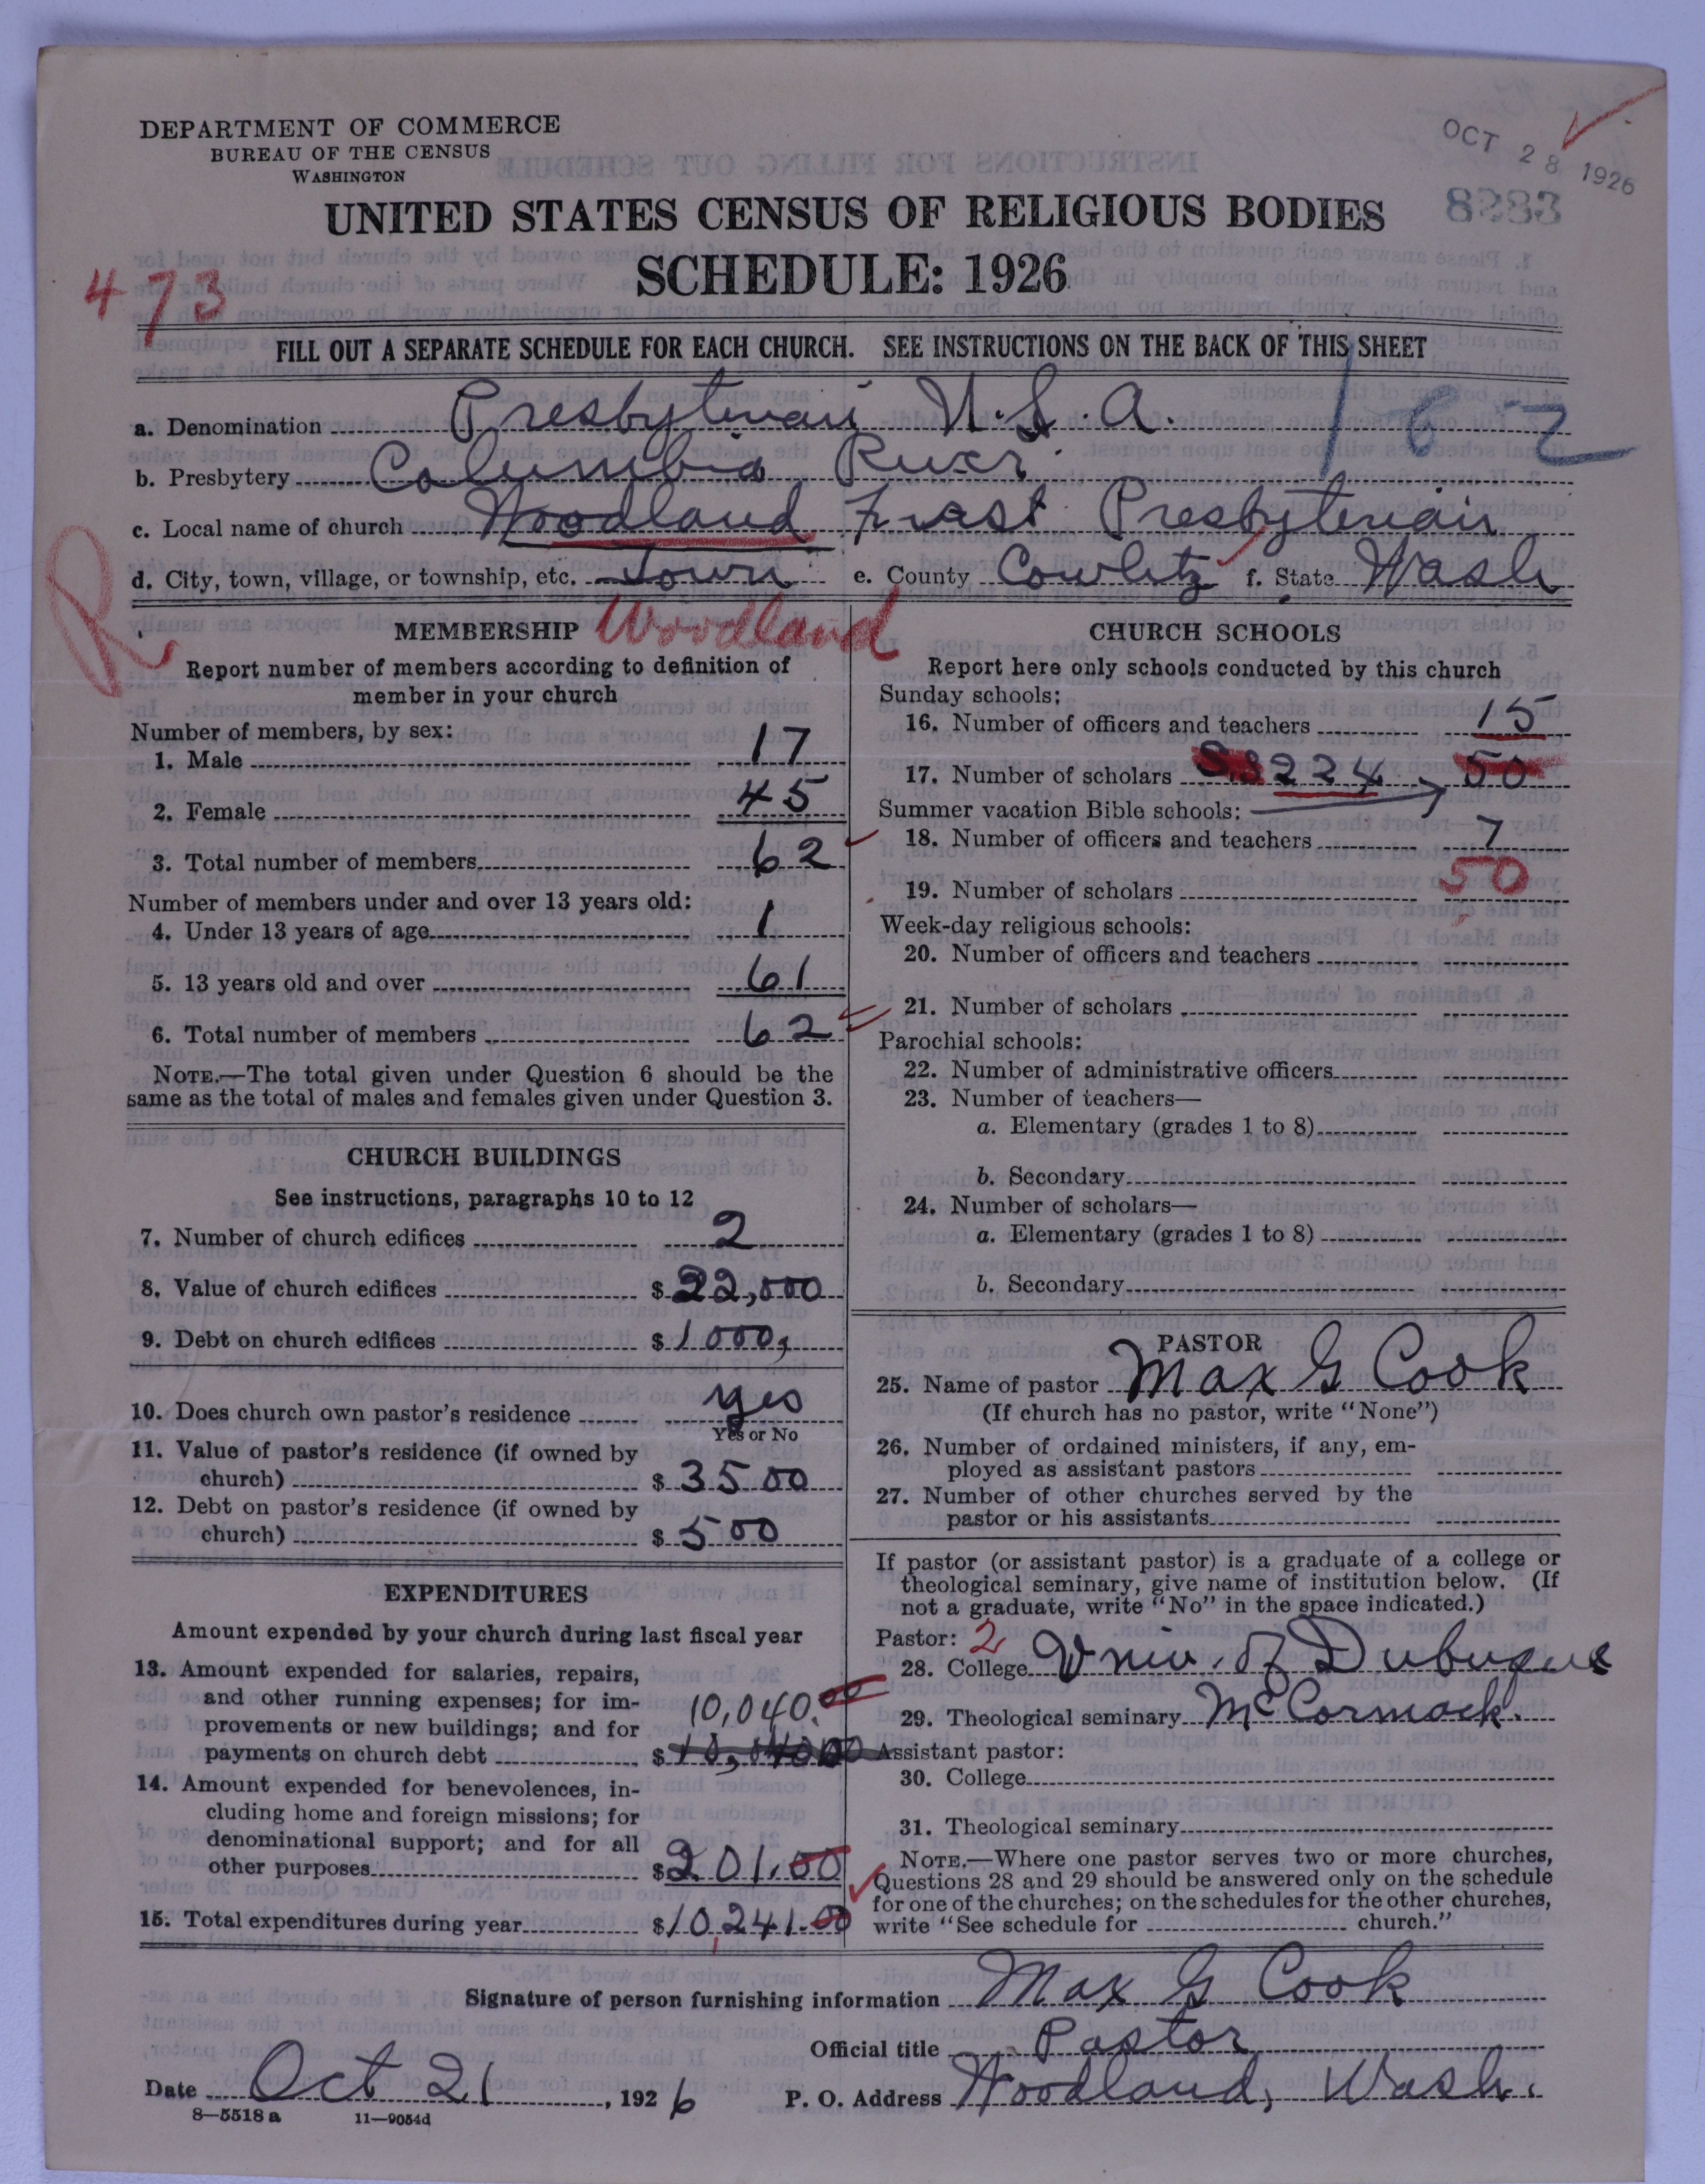 DEPARTMENT OF COMMERCE
BUREAU OF THE CENSUS
WASHINGTON
OCT 28 1926
8283
UNITED STATES CENSUS OF RELIGIOUS BODIES
SCHEDULE: 1926
473
FILL OUT A SEPARATE SCHEDULE FOR EACH CHURCH. SEE INSTRUCTIONS ON THE BACK OF THIS SHEET
a. Denomination Presbyterian U.S.A. 162
b. Presbytery Columbia River
c. Local name of church Woodland First Presbyterian
d. City, town, village, or township, etc. Town e. County Cowlitz f. State Wash
R
MEMBERSHIP Woodland
Report number of members according to definition of
member in your church
Number of members, by sex:
1. Male 17
2. Female 45
3. Total number of members 62
Number of members under and over 13 years old:
4. Under 13 years of age 1
5. 13 years old and over 61
6. Total number of members 62
NOTE.—The total given under Question 6 should be the
same as the total of males and females given under Question 3.
CHURCH BUILDINGS
See instructions, paragraphs 10 to 12
7. Number of church edifices 2
8. Value of church edifices $22,000
9. Debt on church edifices $1000,
10. Does church own pastor's residence yes
Yes or No
11. Value of pastor's residence (if owned by
church) $3500
12. Debt on pastor's residence (if owned by
church) $500
EXPENDITURES
Amount expended by your church during last fiscal year
13. Amount expended for salaries, repairs,
and other running expenses; for im-
provements or new buildings; and for
payments on church debt 10,040.00
$
14. Amount expended for benevolences, in-
cluding home and foreign missions; for
denominational support; and for all
other purposes $201.00
15. Total expenditures during year $10,241.00
CHURCH SCHOOLS
Report here only schools conducted by this church
Sunday schools:
16. Number of officers and teachers 15
17. Number of scholars 224 50
Summer vacation Bible schools:
18. Number of officers and teachers 7
19. Number of scholars 50
Week-day religious schools:
20. Number of officers and teachers
21. Number of scholars
Parochial schools:
22. Number of administrative officers
23. Number of teachers—
a. Elementary (grades 1 to 8)
b. Secondary
24. Number of scholars—
a. Elementary (grades 1 to 8)
b. Secondary
PASTOR
25. Name of pastor Max G Cook
(If church has no pastor, write "None")
26. Number of ordained ministers, if any, em-
ployed as assistant pastors
27. Number of other churches served by the
pastor or his assistants
If pastor (or assistant pastor) is a graduate of a college or
theological seminary, give name of institution below. (If
not a graduate, write "No" in the space indicated.)
Pastor: 2
28. College Univ. of Dubuque
29. Theological seminary McCormack.
Assistant pastor:
30. College
31. Theological seminary
NOTE.—Where one pastor serves two or more churches,
Questions 28 and 29 should be answered only on the schedule
for one of the churches; on the schedules for the other churches,
write "See schedule for church."
Signature of person furnishing information Max G Cook
Official title Pastor
Date Oct 21, 1926 P. O. Address Woodland, Wash.
8—5518 a 11—9054d